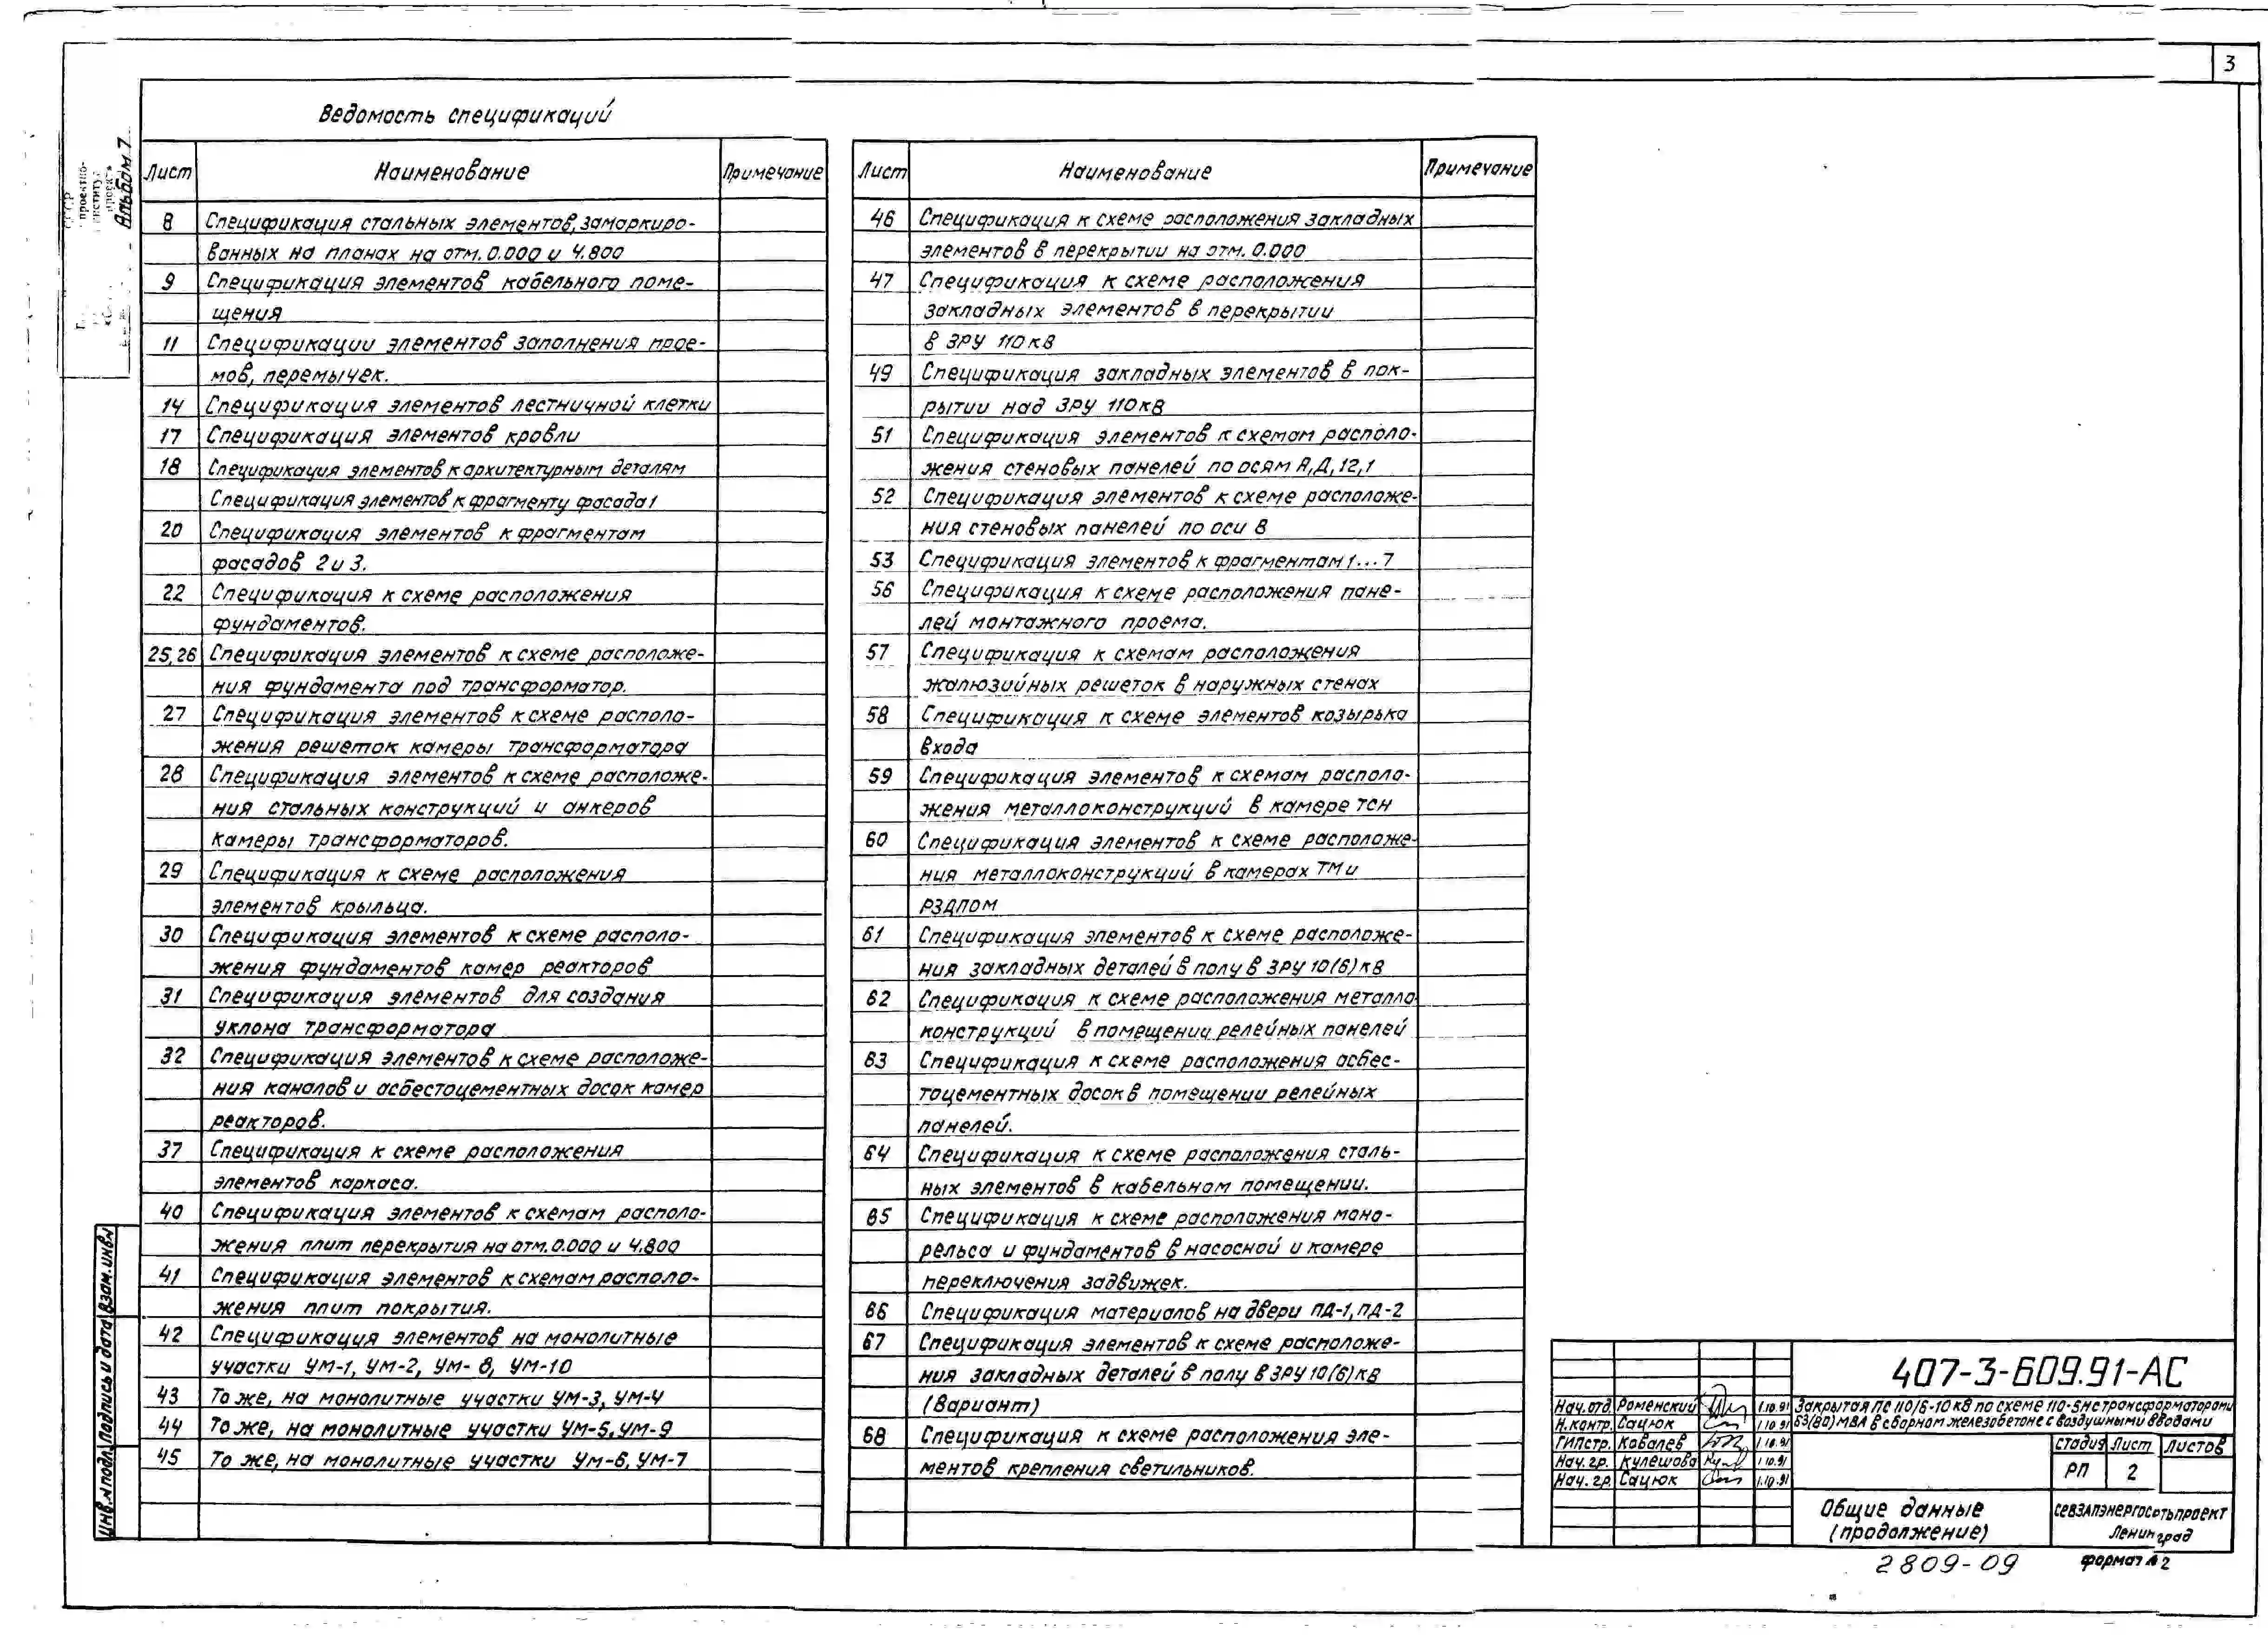 3
Альбом 7
Ведомость спецификаций
Лист Наименование Примечание
8 Спецификация стальных элементов, замаркиро-
ванных на планах на отм. 0.000 и 4.800
9 Спецификация элементов кабельного поме-
щения
11 Спецификации элементов заполнения прое-
мов, перемычек.
14 Спецификация элементов лестничной клетки
17 Спецификация элементов кровли
18 Спецификация элементов к архитектурным деталям
Спецификация элементов к фрагменту фасада 1
20 Спецификация элементов к фрагментам
фасадов 2 и 3.
22 Спецификация к схеме расположения
фундаментов.
25, 26 Спецификация элементов к схеме расположе-
ния фундамента под трансформатор.
27 Спецификация элементов к схеме располо-
жения решеток камеры трансформатора
28 Спецификация элементов к схеме расположе-
ния стальных конструкций и анкеров
камеры трансформаторов.
29 Спецификация к схеме расположения
элементов крыльца.
30 Спецификация элементов к схеме располо-
жения фундаментов камер реакторов
31 Спецификация элементов для создания
уклона трансформатора
32 Спецификация элементов к схеме расположе-
ния каналов и асбестоцементных досок камер
реакторов.
37 Спецификация к схеме расположения
элементов каркаса.
40 Спецификация элементов к схемам располо-
жения плит перекрытия на отм. 0.000 и 4.800
41 Спецификация элементов к схемам располо-
жения плит покрытия.
42 Спецификация элементов на монолитные
участки УМ-1, УМ-2, УМ-8, УМ-10
43 То же, на монолитные участки УМ-3, УМ-4
44 То же, на монолитные участки УМ-5, УМ-9
45 То же, на монолитные участки УМ-6, УМ-7
Лист Наименование Примечание
46 Спецификация к схеме расположения закладных
элементов в перекрытии на отм. 0.000
47 Спецификация к схеме расположения
закладных элементов в перекрытии
в ЗРУ 110 кВ
49 Спецификация закладных элементов в пок-
рытии над ЗРУ 110 кВ
51 Спецификация элементов к схемам располо-
жения стеновых панелей по осям А, Д, 12, 1
52 Спецификация элементов к схеме расположе-
ния стеновых панелей по оси В
53 Спецификация элементов к фрагментам 1...7
56 Спецификация к схеме расположения пане-
лей монтажного проема.
57 Спецификация к схемам расположения
жалюзийных решеток в наружных стенах
58 Спецификация к схеме элементов козырька
входа
59 Спецификация элементов к схемам располо-
жения металлоконструкций в камере ТСН
60 Спецификация элементов к схеме расположе-
ния металлоконструкций в камерах ТМ и
РЗДПОМ
61 Спецификация элементов к схеме расположе-
ния закладных деталей в полу в ЗРУ 10(6) кВ
62 Спецификация к схеме расположения металло
конструкций в помещении релейных панелей
63 Спецификация к схеме расположения асбес-
тоцементных досок в помещении релейных
панелей.
64 Спецификация к схеме расположения сталь-
ных элементов в кабельном помещении.
65 Спецификация к схеме расположения моно-
рельса и фундаментов в насосной и камере
переключения задвижек.
66 Спецификация материалов на двери ПД-1, ПД-2
67 Спецификация элементов к схеме расположе-
ния закладных деталей в полу в ЗРУ 10(6) кВ
(Вариант)
68 Спецификация к схеме расположения эле-
ментов крепления светильников.
Инв. № подл. Подпись и дата Взам. инв №
407-3-609.91-АС
Нач. отд. Роменский 1.10.91 Закрытая ПС 110/6-10 кВ по схеме 110-5Н с трансформаторами
Н. контр. Сацюк 1.10.91 63(80) МВА в сборном железобетоне с воздушными вводами
ГИП стр. Ковалев 1.10.91 Стадия Лист Листов
Нач. гр. Кулешова 1.10.91 РП 2
Нач. гр. Сацюк 1.10.91
Общие данные
(продолжение)
СЕВЗАПЭНЕРГОСЕТЬПРОЕКТ
Ленинград
2809-09 формат А2